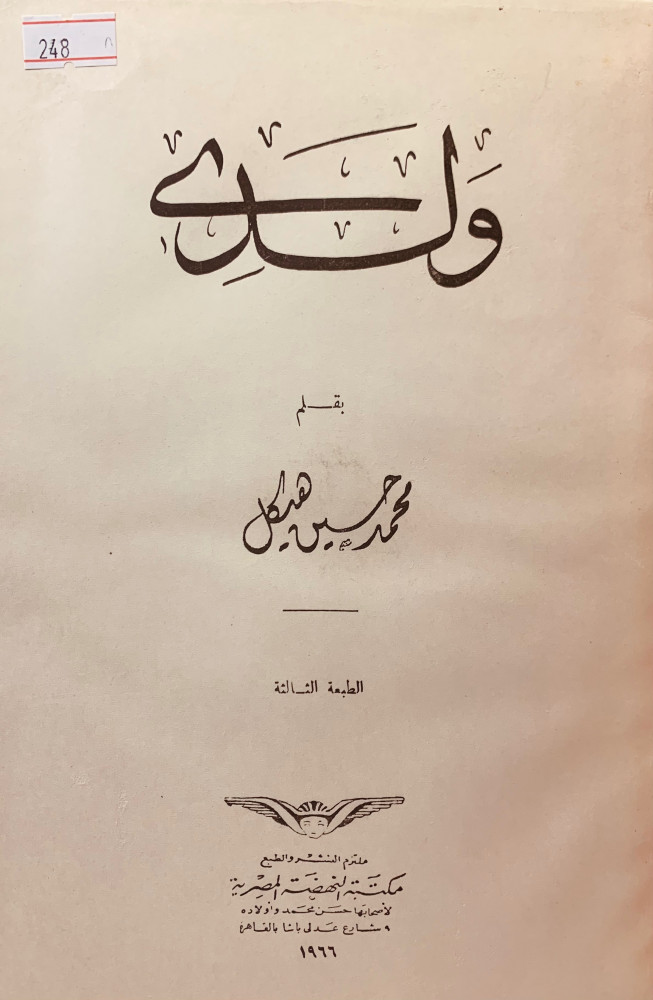 248
وَلَدِي
بقلم
محمد حسين هيكل
الطبعة الثالثة
ملتزم النشر والطبع
مكتبة النهضة المصرية
لأصحابها حسن محمد وأولاده
٩ شارع عدلى باشا بالقاهرة
١٩٦٦